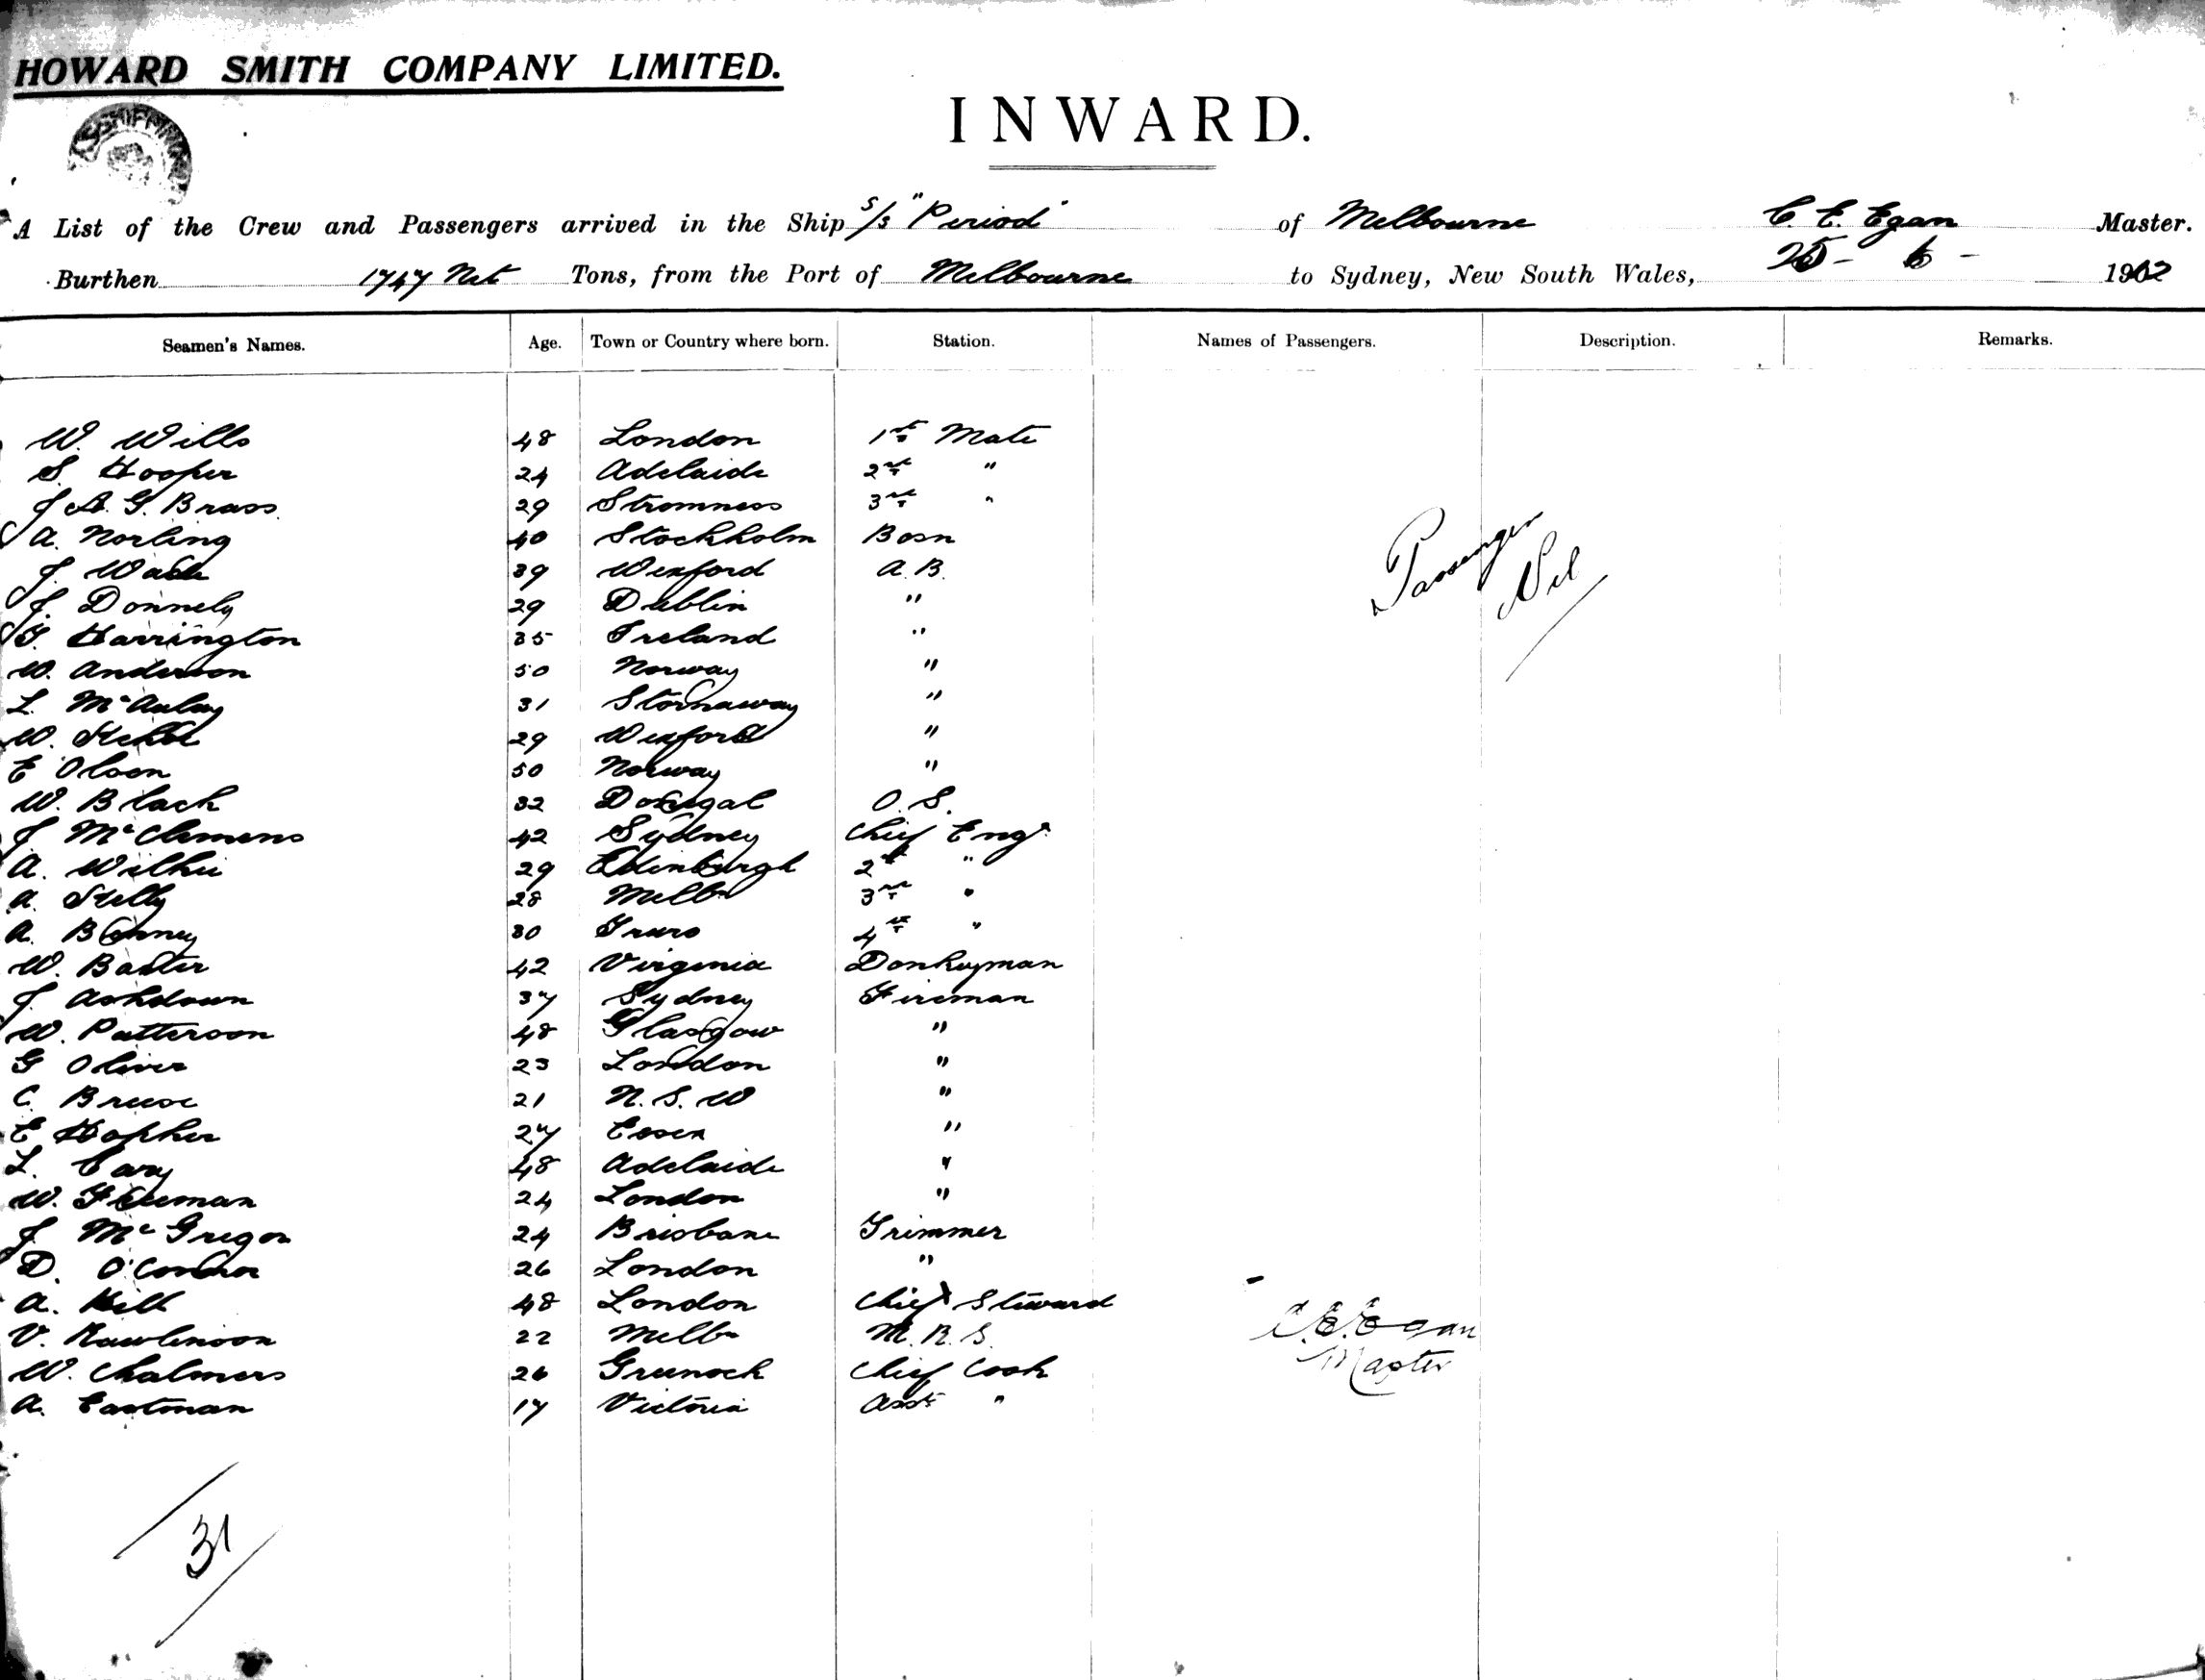 HOWARD SMITH COMPANY LIMITED.
INWARD.
A List of the Crew and Passengers arrived in the Ship S/S "Period" of Melbourne C. E. Egan Master.
Burthen 1747 Net Tons, from the Port of Melbourne to Sydney, New South Wales, 25 - 6 - 1912
Seamen's Names. Age. Town or Country where born. Station. Names of Passengers. Description. Remarks.
W. Wills 48 London 1st Mate
S. Hooper 24 Adelaide 2nd "
J A. G. Brass 29 Stromness 3rd "
A. Norling 40 Stockholm Bosn
J. Wade 39 Wexford A. B.
J. Donnely 29 Dublin "
T. Harrington 35 Ireland "
Passengers
Nil
W. Anderson 50 Norway "
L. McAulay 31 Stornaway "
W. 29 Wexford "
E Olson 50 Norway "
W. Black 32 Donegal O. S.
J McClemens 42 Sydney Chief Engr
A. Wilkie 29 Edinburgh 2nd "
A. Kelly 28 Melbn 3rd "
A. 30 Truro 4th "
W. Baxter 42 Virginia Donkeyman
J. Ashdown 37 Sydney Fireman
W. Patterson 48 Glasgow "
G Oliver 23 London "
C. Breese 21 N. S. W "
E Hopher 27 Essex "
L. Cary 48 Adelaide "
W. Freeman 24 London "
J McGregor 24 Brisbane Trimmer
D. O'Connor 26 London "
A. Hill 48 London Chief Steward
V. Rawlinson 22 Melbn M. R. S.
W. Chalmers 26 Greenock Chief Cook
A. Eastman 17 Victoria Asst "
C. E. Egan
Master
31